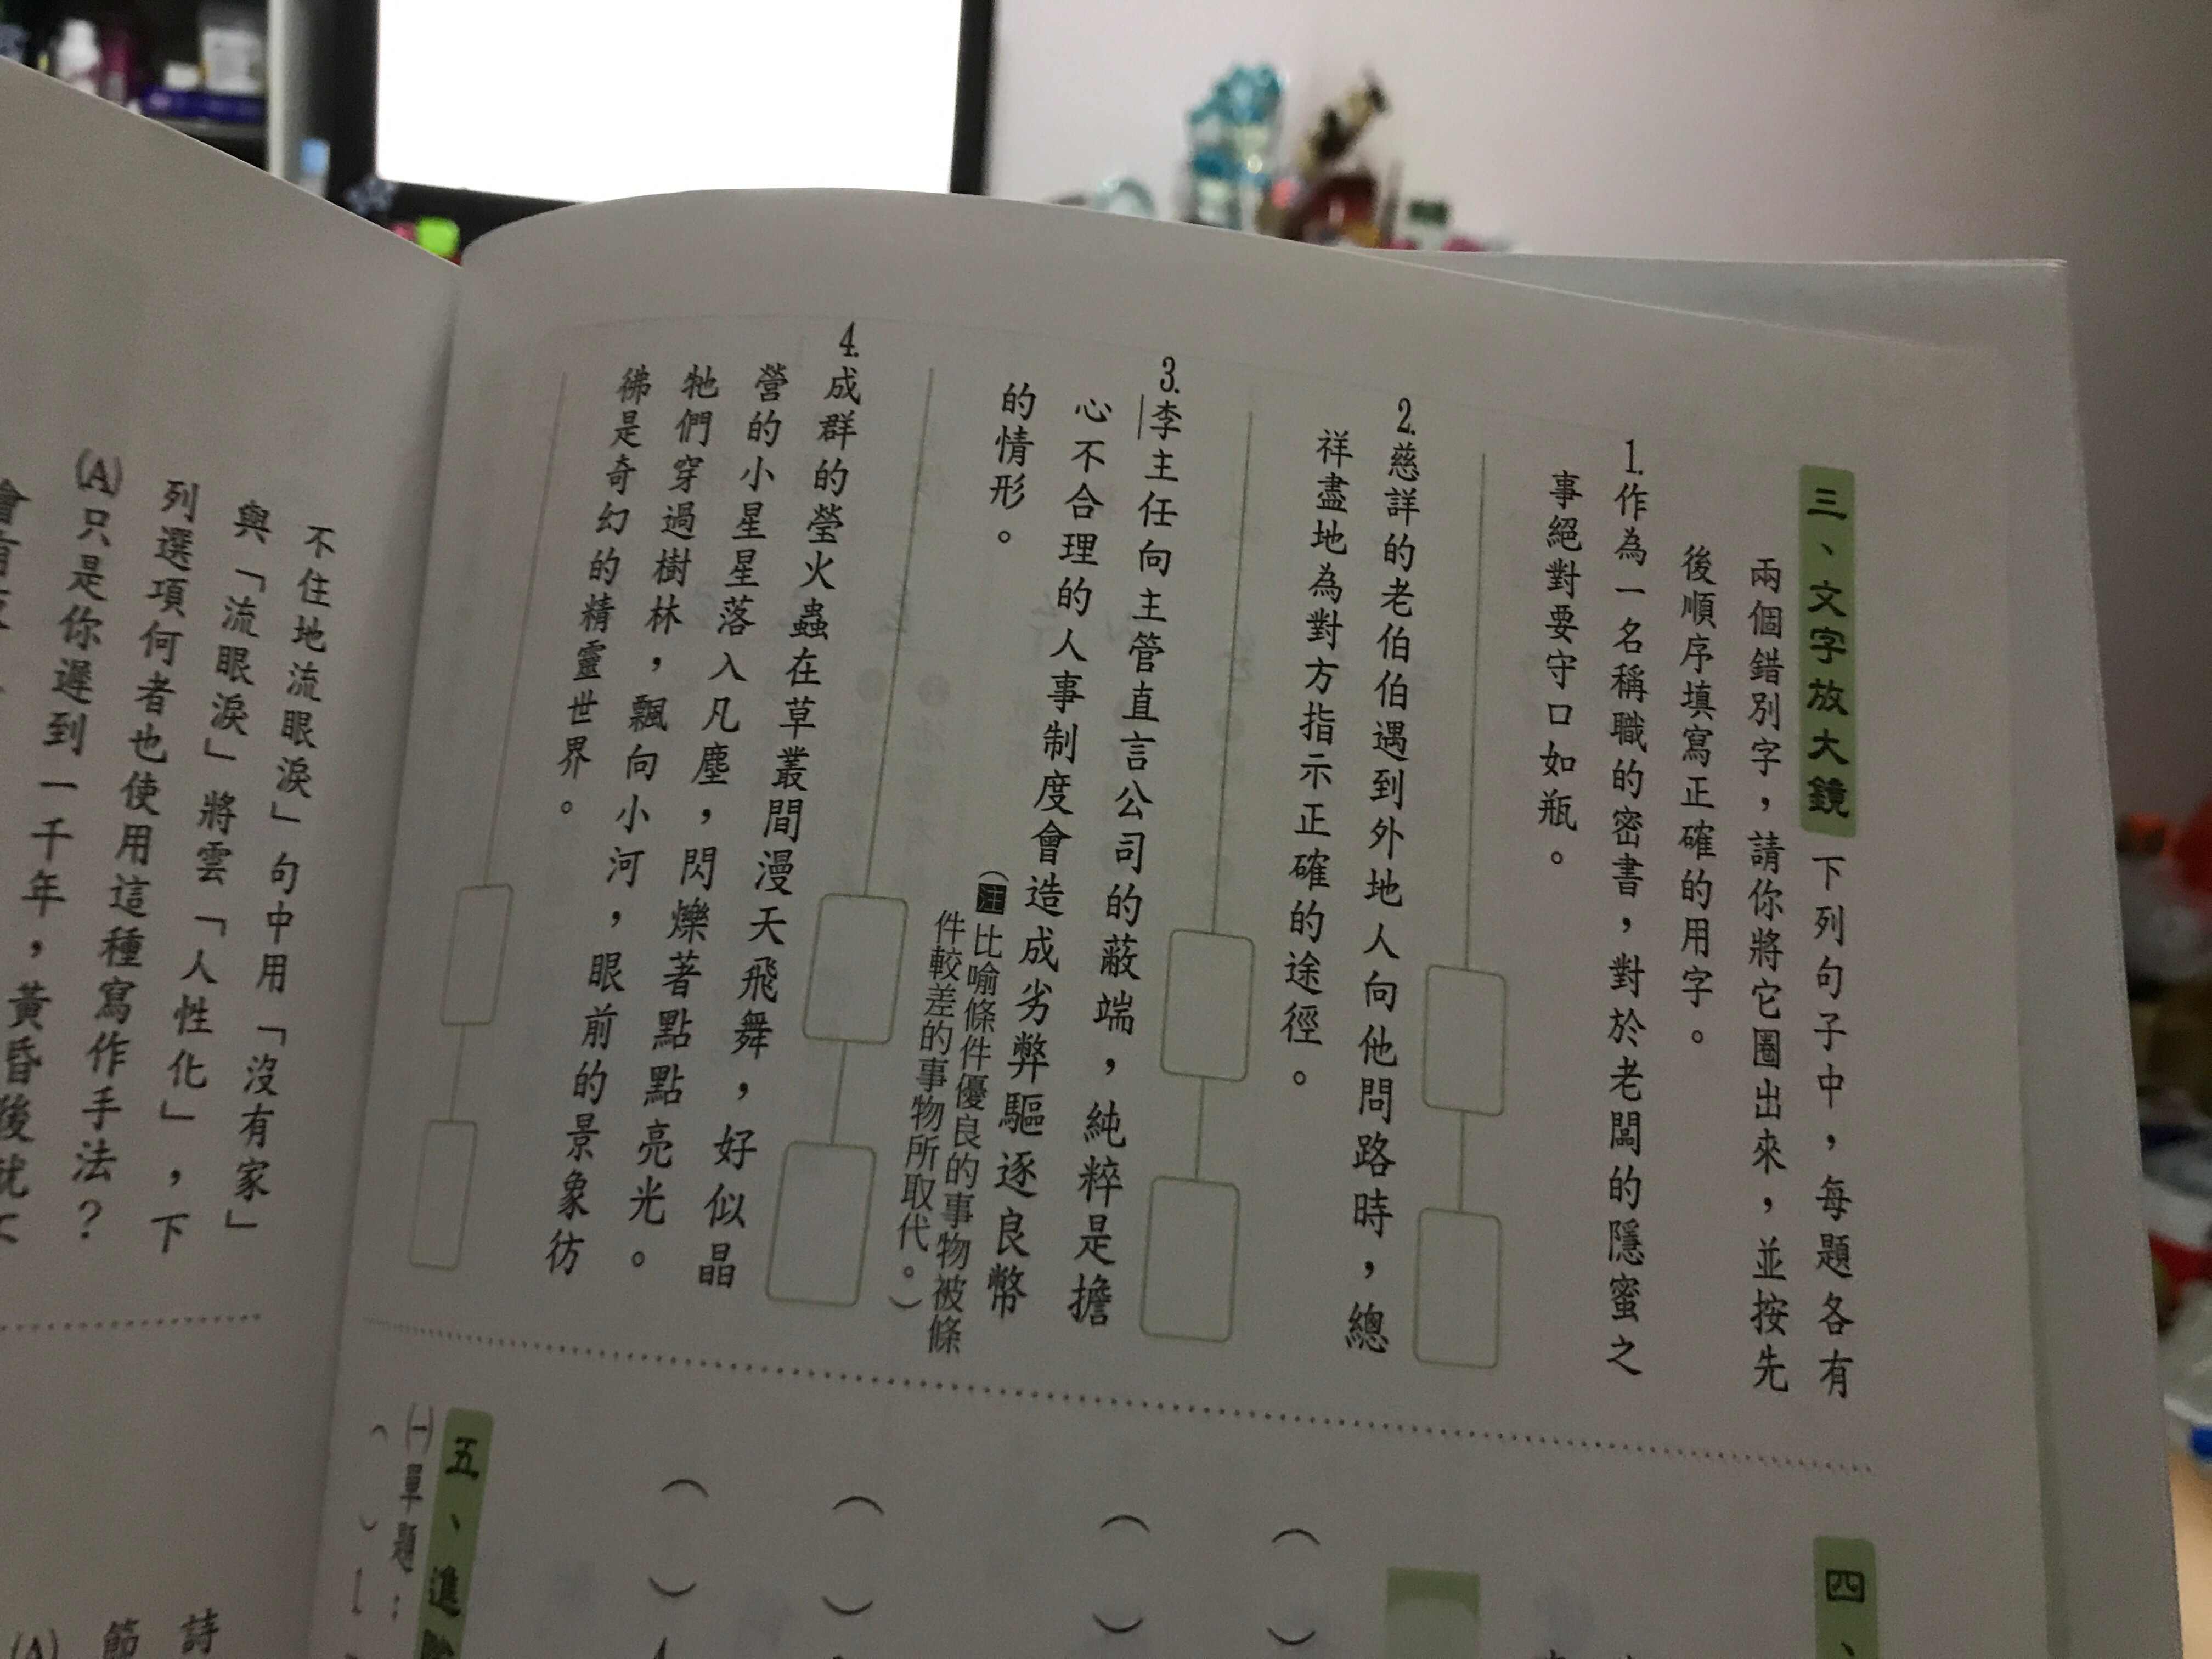 三、文字放大鏡 下列句子中，每題各有
兩個錯別字，請你將它圈出來，並按先
後順序填寫正確的用字。
1.作為一名稱職的密書，對於老闆的隱蜜之
事絕對要守口如瓶。
2.慈詳的老伯伯遇到外地人向他問路時，總
祥盡地為對方指示正確的途徑。
3.李主任向主管直言公司的蔽端，純粹是擔
心不合理的人事制度會造成劣弊驅逐良幣
的情形。
(注比喻條件優良的事物被條
件較差的事物所取代。)
4.成群的瑩火蟲在草叢間漫天飛舞，好似晶
營的小星星落入凡塵，閃爍著點點亮光。
牠們穿過樹林，飄向小河，眼前的景象彷
彿是奇幻的精靈世界。
不住地流眼淚」句中用「沒有家」
與「流眼淚」將雲「人性化」，下
列選項何者也使用這種寫作手法？
(A)只是你遲到一千年，黃昏後就不
四、
( )
( )
( )
( )
五、進
㈠單題：
( )
詩
節
(A)